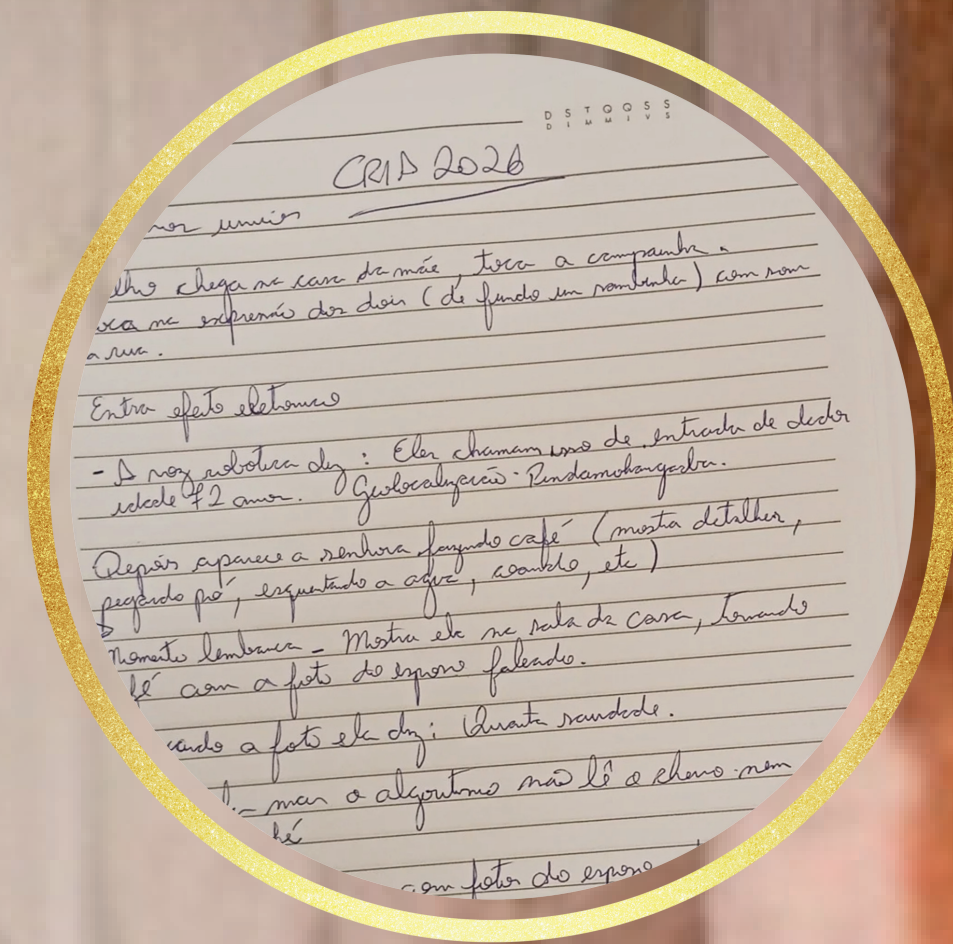 D S T Q Q S S
D L M M J V S
CRIA 2026
lho chega na casa da mãe, toca a campainha.
oca na expressão dos dois (de fundo um sambinha) com som
a rua.
Entra efeito eletronico
- A voz robotica diz: Eles chamam isso de entrada de dados
idade 72 anos. Geolocalização - Pindamonhangaba.
Depois aparece a senhora fazendo café (mostra detalhes,
pegando pó, esquentando a agua, coando, etc)
Momento lembranca - Mostra ela na sala da casa, tomando
fé com a foto do esposo falecido.
cando a foto ela diz: Quanta saudade.
mas o algoritmo não lê o cheiro nem
fé
com fotos do esposo